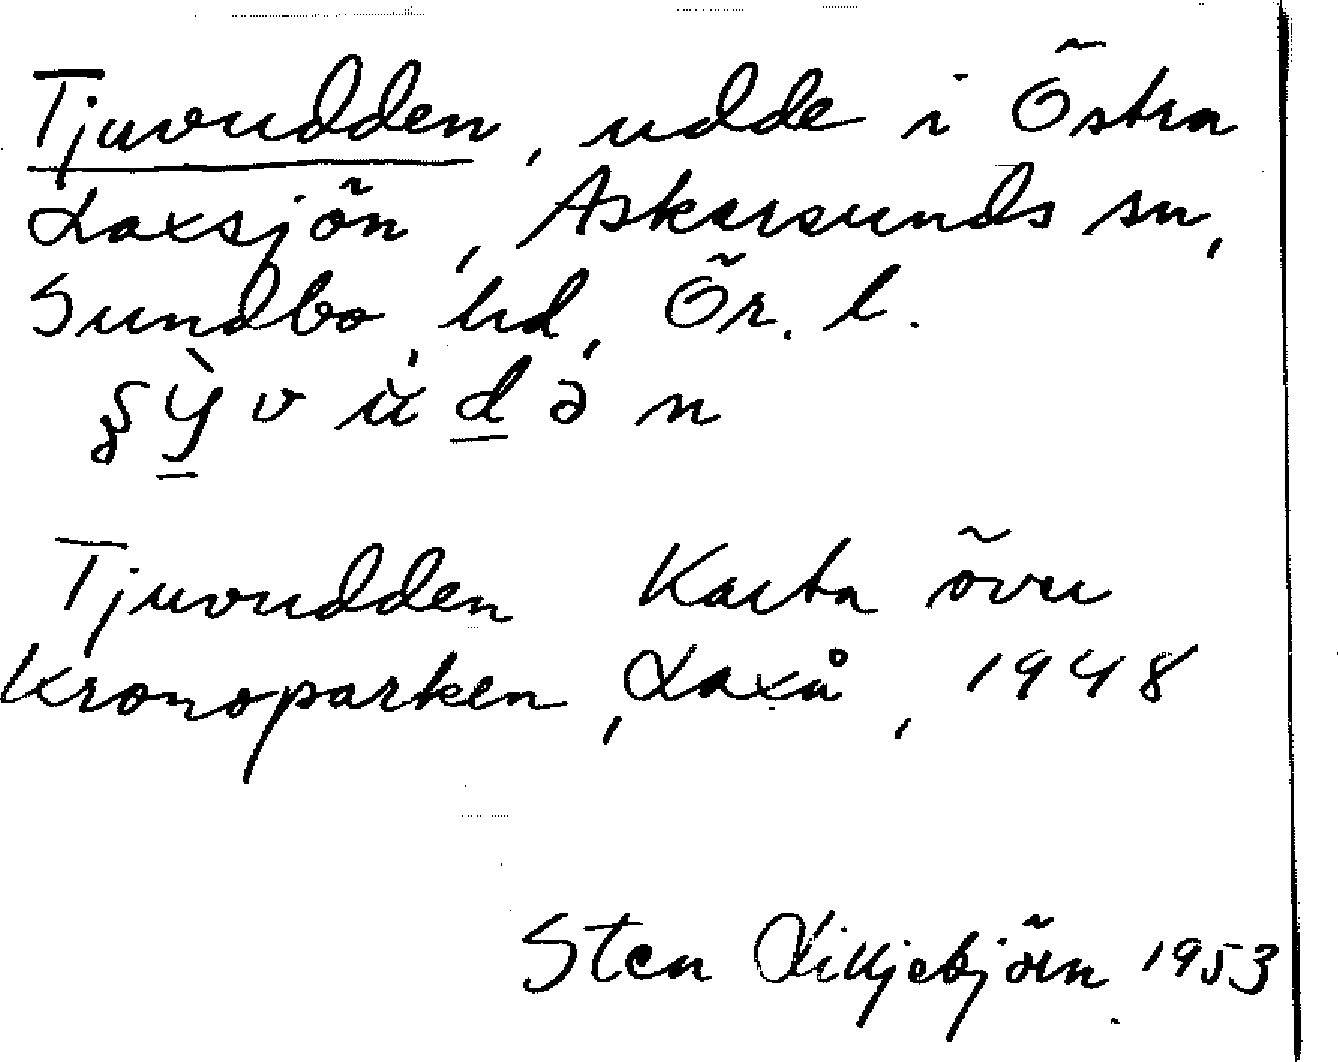 Tjuvudden, udde i Östra
Laxsjön, Askersunds sn,
Sundbo hd, Ör. l.
Tjuvudden Karta över
Kronoparken, Laxå, 1948
Sten Lilljebjörn 1953